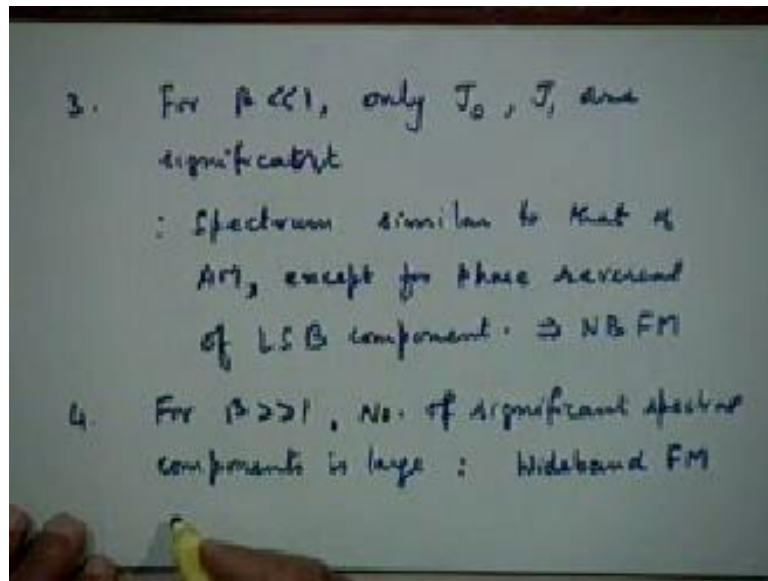 3. For β <<1, only J₀, J₁ are
significant
: Spectrum similar to that of
AM, except for phase reversal
of LSB component. ⇒ NBFM
4. For β>>1, No. of significant spectral
components is large : Wideband FM